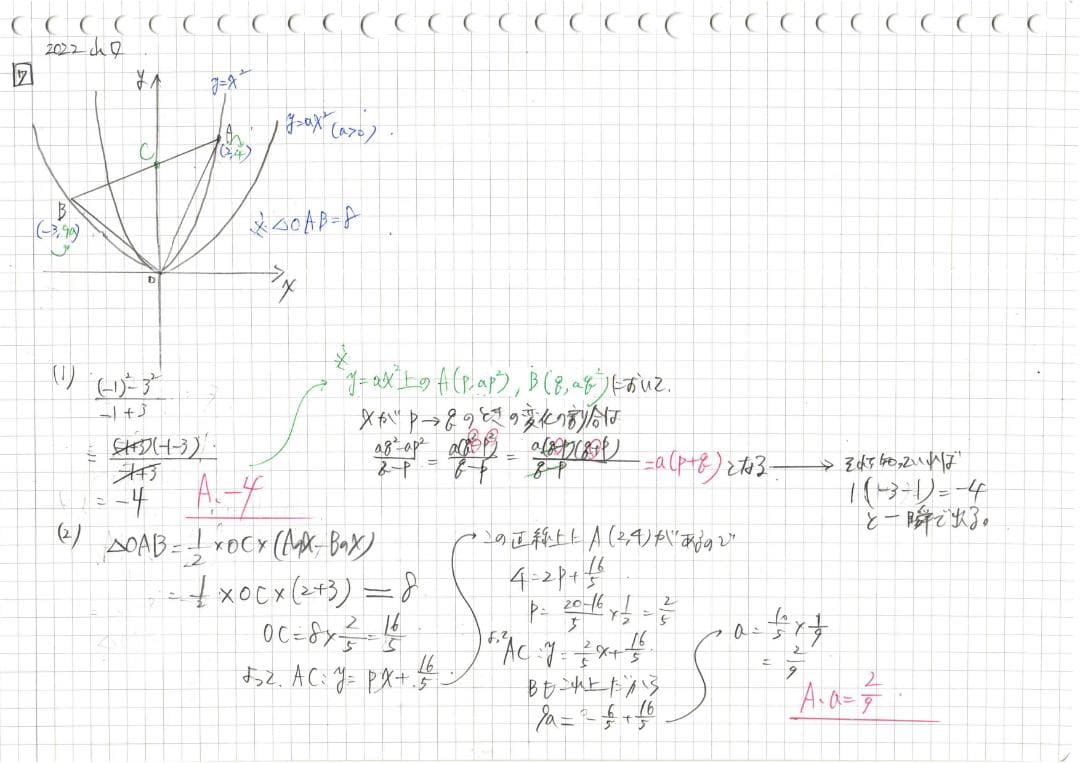 2022 山口
7
y
y=x²
A
(2,4)
y=ax² (a>0)
C
B
(-3,9a)
※ △OAB=8
O
x
(1) (-1)²-3² / -1+3
= (-1+3)(-1-3) / -1+3
= -4
A. -4
※ y=ax²上のA(p,ap²), B(q,aq²)において
xがp→qのときの変化の割合は
aq²-ap² / q-p = a(q²-p²) / q-p = a(q-p)(q+p) / q-p = a(p+q)となる → それを知っていれば
1(-3-1)=-4
と一瞬で出る。
(2) △OAB = 1/2 × OC × (Aのx - Bのx)
= 1/2 × OC × (2+3) = 8
OC = 8 × 2/5 = 16/5
よって、AC: y = px + 16/5
この直線上にA(2,4)があるので
4 = 2p + 16/5
p = 20-16 / 5 × 1/2 = 2/5
よって AC: y = 2/5 x + 16/5
Bもこれ上だから
9a = -6/5 + 16/5
a = 10/5 × 1/9
= 2/9
A. a = 2/9